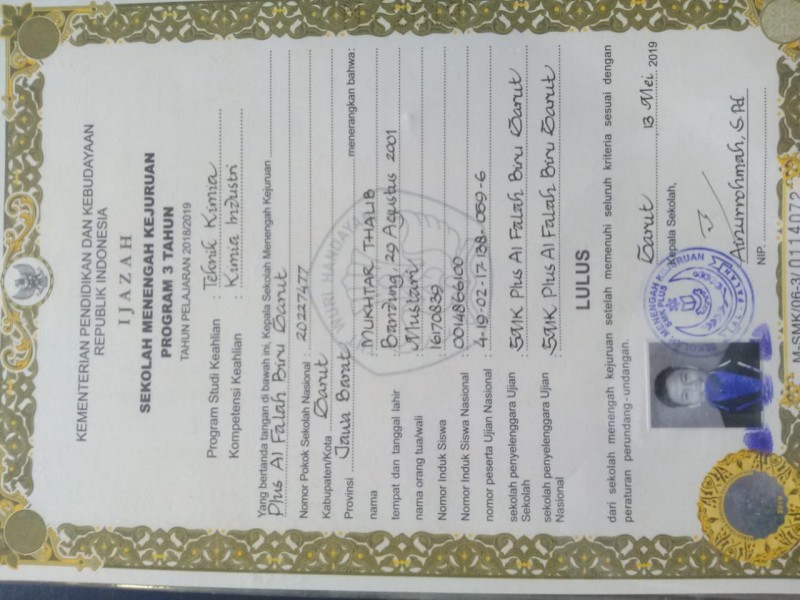 KEMENTERIAN PENDIDIKAN DAN KEBUDAYAAN
REPUBLIK INDONESIA
IJAZAH
SEKOLAH MENENGAH KEJURUAN
PROGRAM 3 TAHUN
TAHUN PELAJARAN 2018/2019
Program Studi Keahlian : Teknik Kimia
Kompetensi Keahlian : Kimia Industri
Yang bertanda tangan di bawah ini, Kepala Sekolah Menengah Kejuruan
Plus Al Falah Biru Garut
Nomor Pokok Sekolah Nasional : 20227477
Kabupaten/Kota Garut
Provinsi Jawa Barat menerangkan bahwa:
nama : MUKHTAR THALIB
tempat dan tanggal lahir : Bandung, 29 Agustus 2001
nama orang tua/wali : Mustari
Nomor Induk Siswa : 16170839
Nomor Induk Siswa Nasional : 0014866100
nomor peserta Ujian Nasional : 4-19-02-17-138-059-6
sekolah penyelenggara Ujian Sekolah : SMK Plus Al Falah Biru Garut
sekolah penyelenggara Ujian Nasional : SMK Plus Al Falah Biru Garut
LULUS
dari sekolah menengah kejuruan setelah memenuhi seluruh kriteria sesuai dengan
peraturan perundang-undangan.
Garut 13 Mei 2019
Kepala Sekolah,
Ainurrohmah, S.Pd
NIP.
M-SMK/06-3/0114072